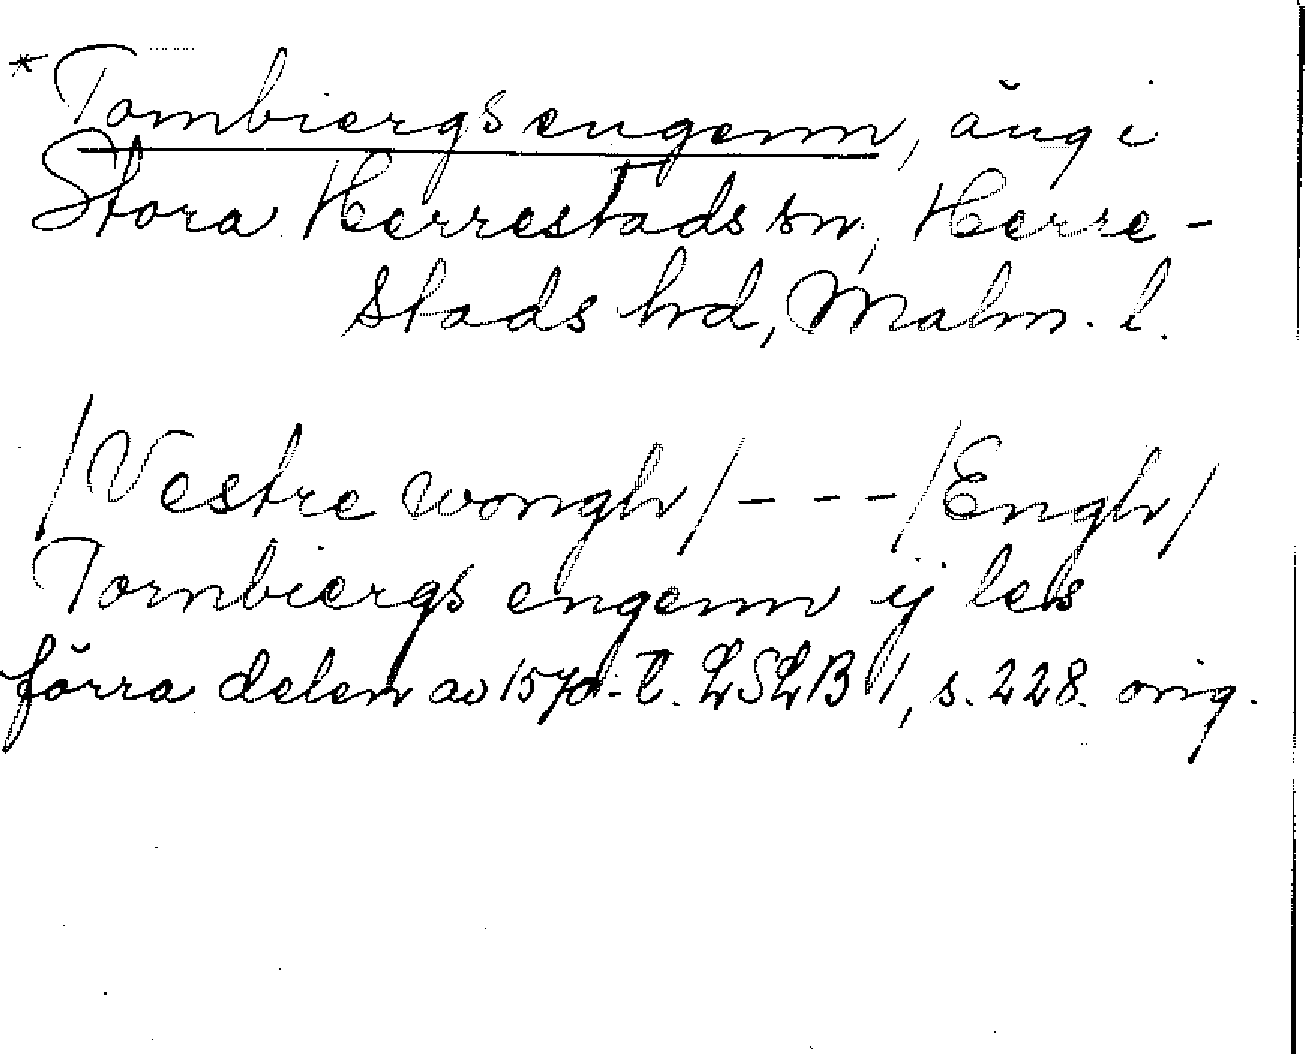 * Tornbiergs engenn, äng i
Stora Herrestads sn, Herre-
stads hd, Malm. l.
/Vestre wongh/ - - - /Engh/
Tornbiergs engenn ij les
förra delen av 1570-t. LSLB 1, s. 228. orig.